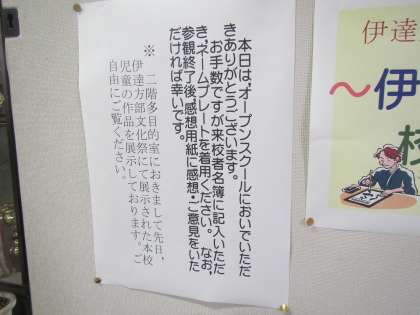 本日は、オープンスクールにおいでいただ
きありがとうございます。
お手数ですが来校者名簿に記入いただ
き、ネームプレートを着用ください。なお、
参観終了後、感想用紙に感想・ご意見をいた
だければ幸いです。
※二階多目的室におきまして先日、
伊達方部文化祭にて展示された本校
児童の作品を展示しております。ご
自由にご覧ください。
伊達
～伊
校